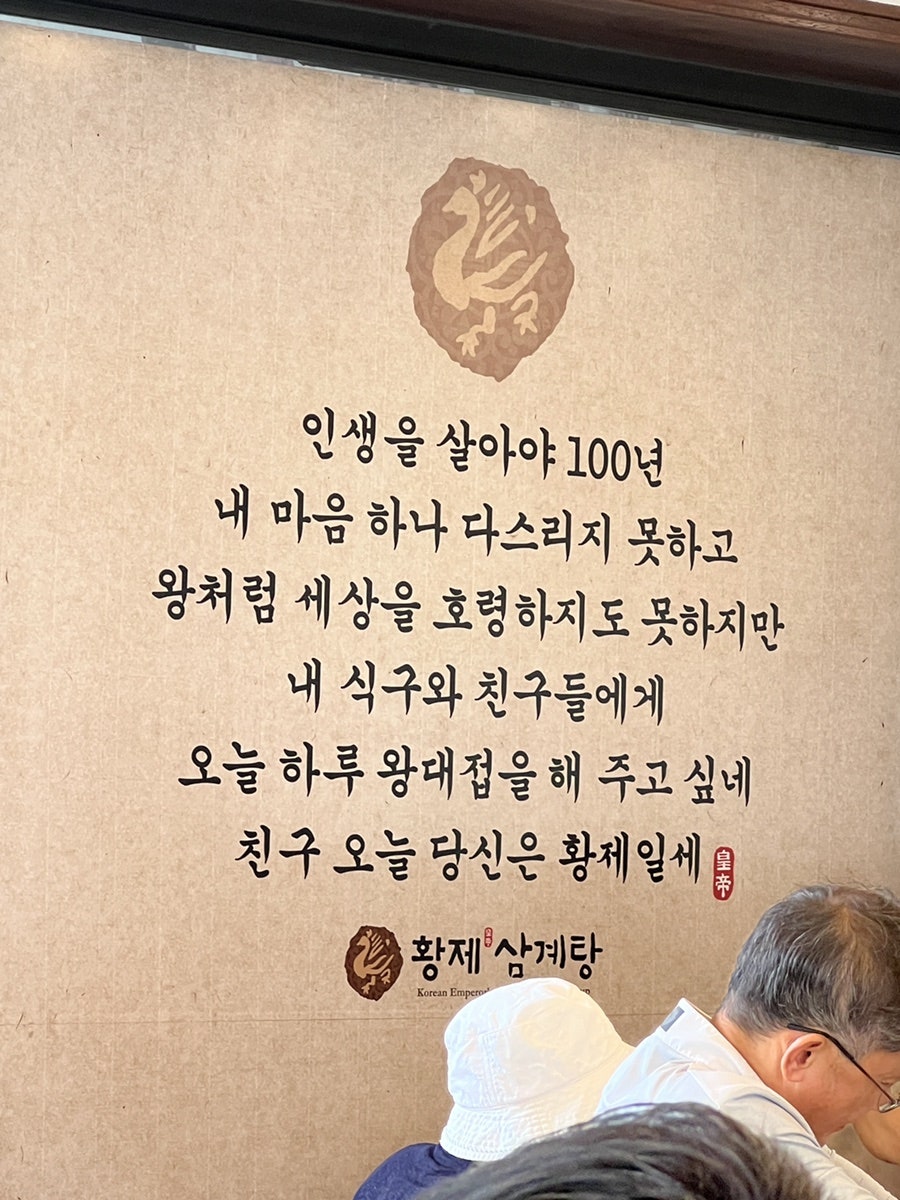 인생을 살아야 100년
내 마음 하나 다스리지 못하고
왕처럼 세상을 호령하지도 못하지만
내 식구와 친구들에게
오늘 하루 왕대접을 해 주고 싶네
친구 오늘 당신은 황제일세
皇帝
황제 삼계탕
Korean